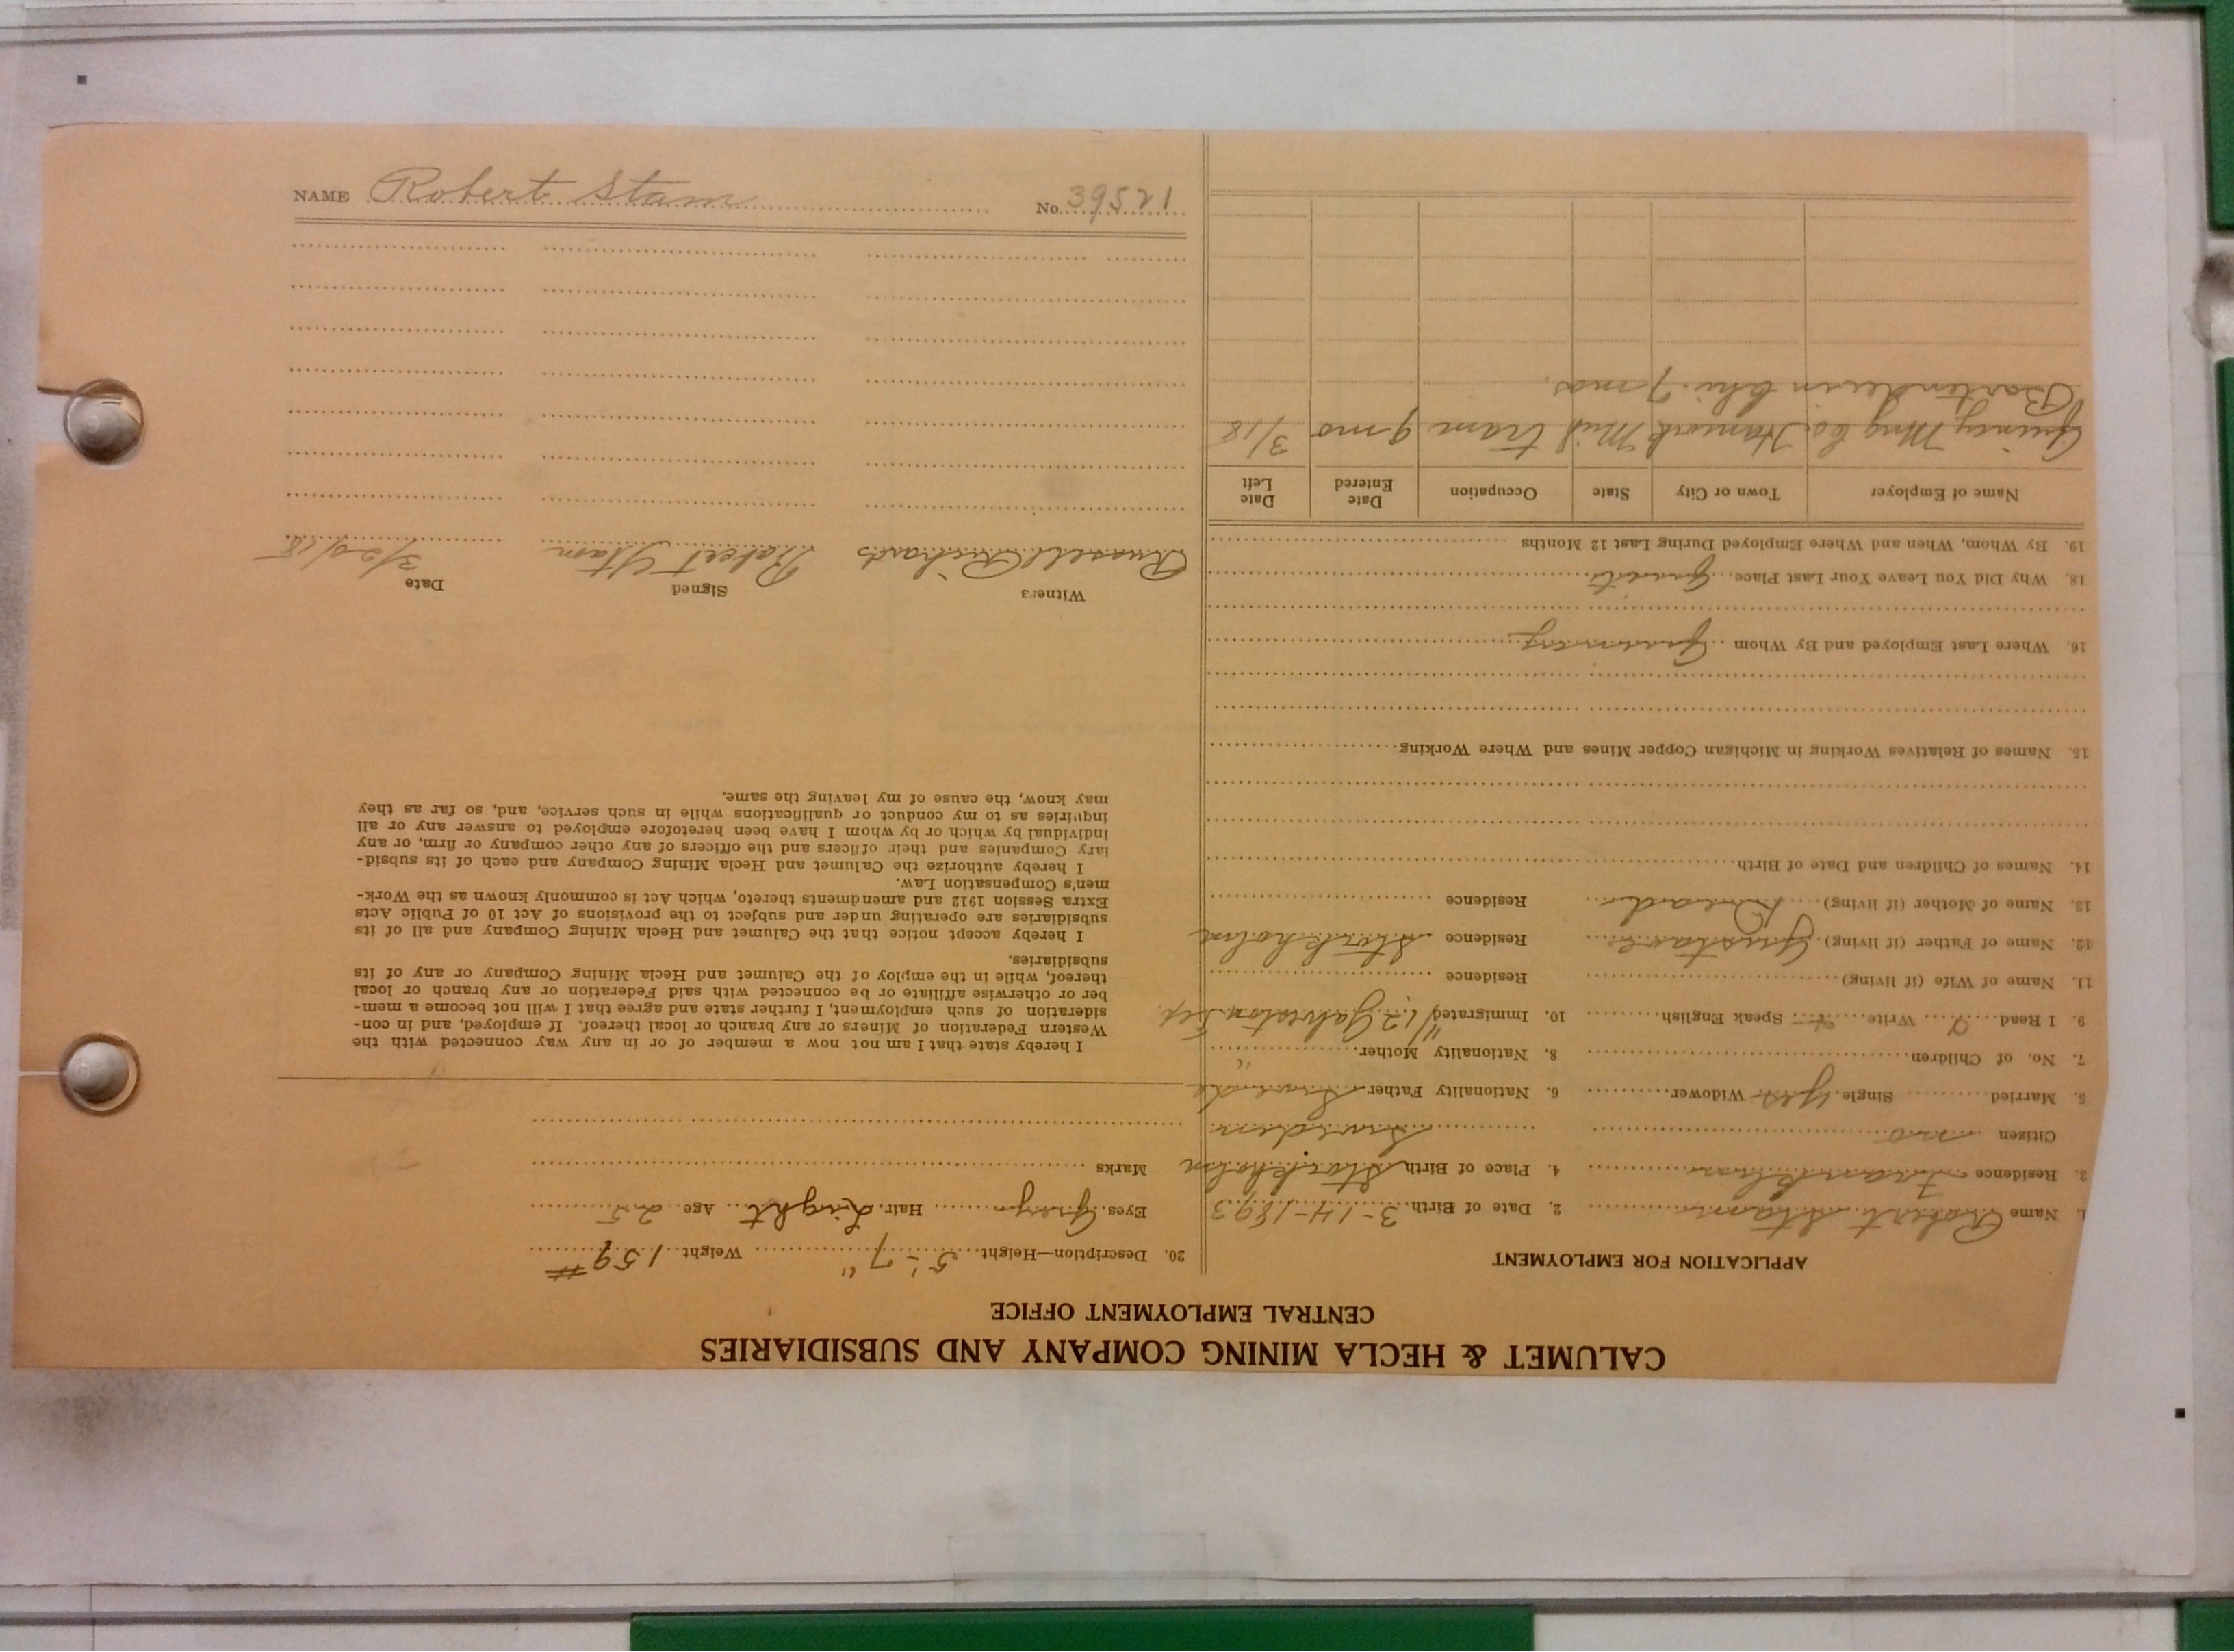 NAME Robert Stam No. 39521
CALUMET & HECLA MINING COMPANY AND SUBSIDIARIES
CENTRAL EMPLOYMENT OFFICE
APPLICATION FOR EMPLOYMENT
1. Name Robert Stam 2. Date of Birth 3-14-1893
3. Residence Franklin 4. Place of Birth Stockholm
Citizen no Sweden
5. Married Single yes Widower 6. Nationality Father Swede
7. No. of Children 8. Nationality Mother "
9. I Read Write Speak English 10. Immigrated Galveston
11. Name of Wife (if living) Residence
12. Name of Father (if living) Gustave Residence Stockholm
13. Name of Mother (if living) Residence
14. Names of Children and Date of Birth
15. Names of Relatives Working in Michigan Copper Mines and Where Working
16. Where Last Employed and By Whom Quincy
18. Why Did You Leave Your Last Place Quit
19. By Whom, When and Where Employed During Last 12 Months
Name of Employer Town or City State Occupation Date Entered Date Left
Quincy Mng Co Hancock Mich tram 9 mo 3/18
Bartender in Chi. 7 mos.
20. Description—Height 5'-7" Weight 159#
Eyes Grey Hair Light Age 25
Marks
I hereby state that I am not now a member of or in any way connected with the
Western Federation of Miners or any branch or local thereof. If employed, and in con-
sideration of such employment, I further state and agree that I will not become a mem-
ber or otherwise affiliate or be connected with said Federation or any branch or local
thereof, while in the employ of the Calumet and Hecla Mining Company or any of its
subsidiaries.
I hereby accept notice that the Calumet and Hecla Mining Company and all of its
subsidiaries are operating under and subject to the provisions of Act 10 of Public Acts
Extra Session 1912 and amendments thereto, which Act is commonly known as the Work-
men's Compensation Law.
I hereby authorize the Calumet and Hecla Mining Company and each of its subsid-
iary Companies and their officers and the officers of any other company or firm, or any
individual by which or by whom I have been heretofore employed to answer any or all
inquiries as to my conduct or qualifications while in such service, and, so far as they
may know, the cause of my leaving the same.
Witness Signed Date
Russell Richards Robert Stam 3/20/18